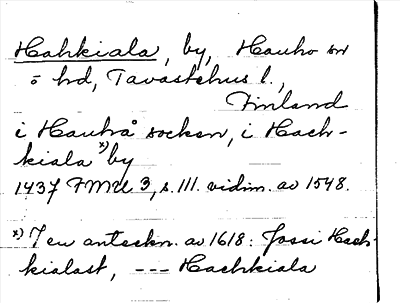 Hahkiala, by, Hauho sn
o hd, Tavastehus l.,
Finland
i Hauhå socken, i Hach-
kiala x) by
1437 FMU 3, s. 111. vidim. av 1548.
x) I en anteckn. av 1618: Jossi Hach-
kialast, --- Hachkiala